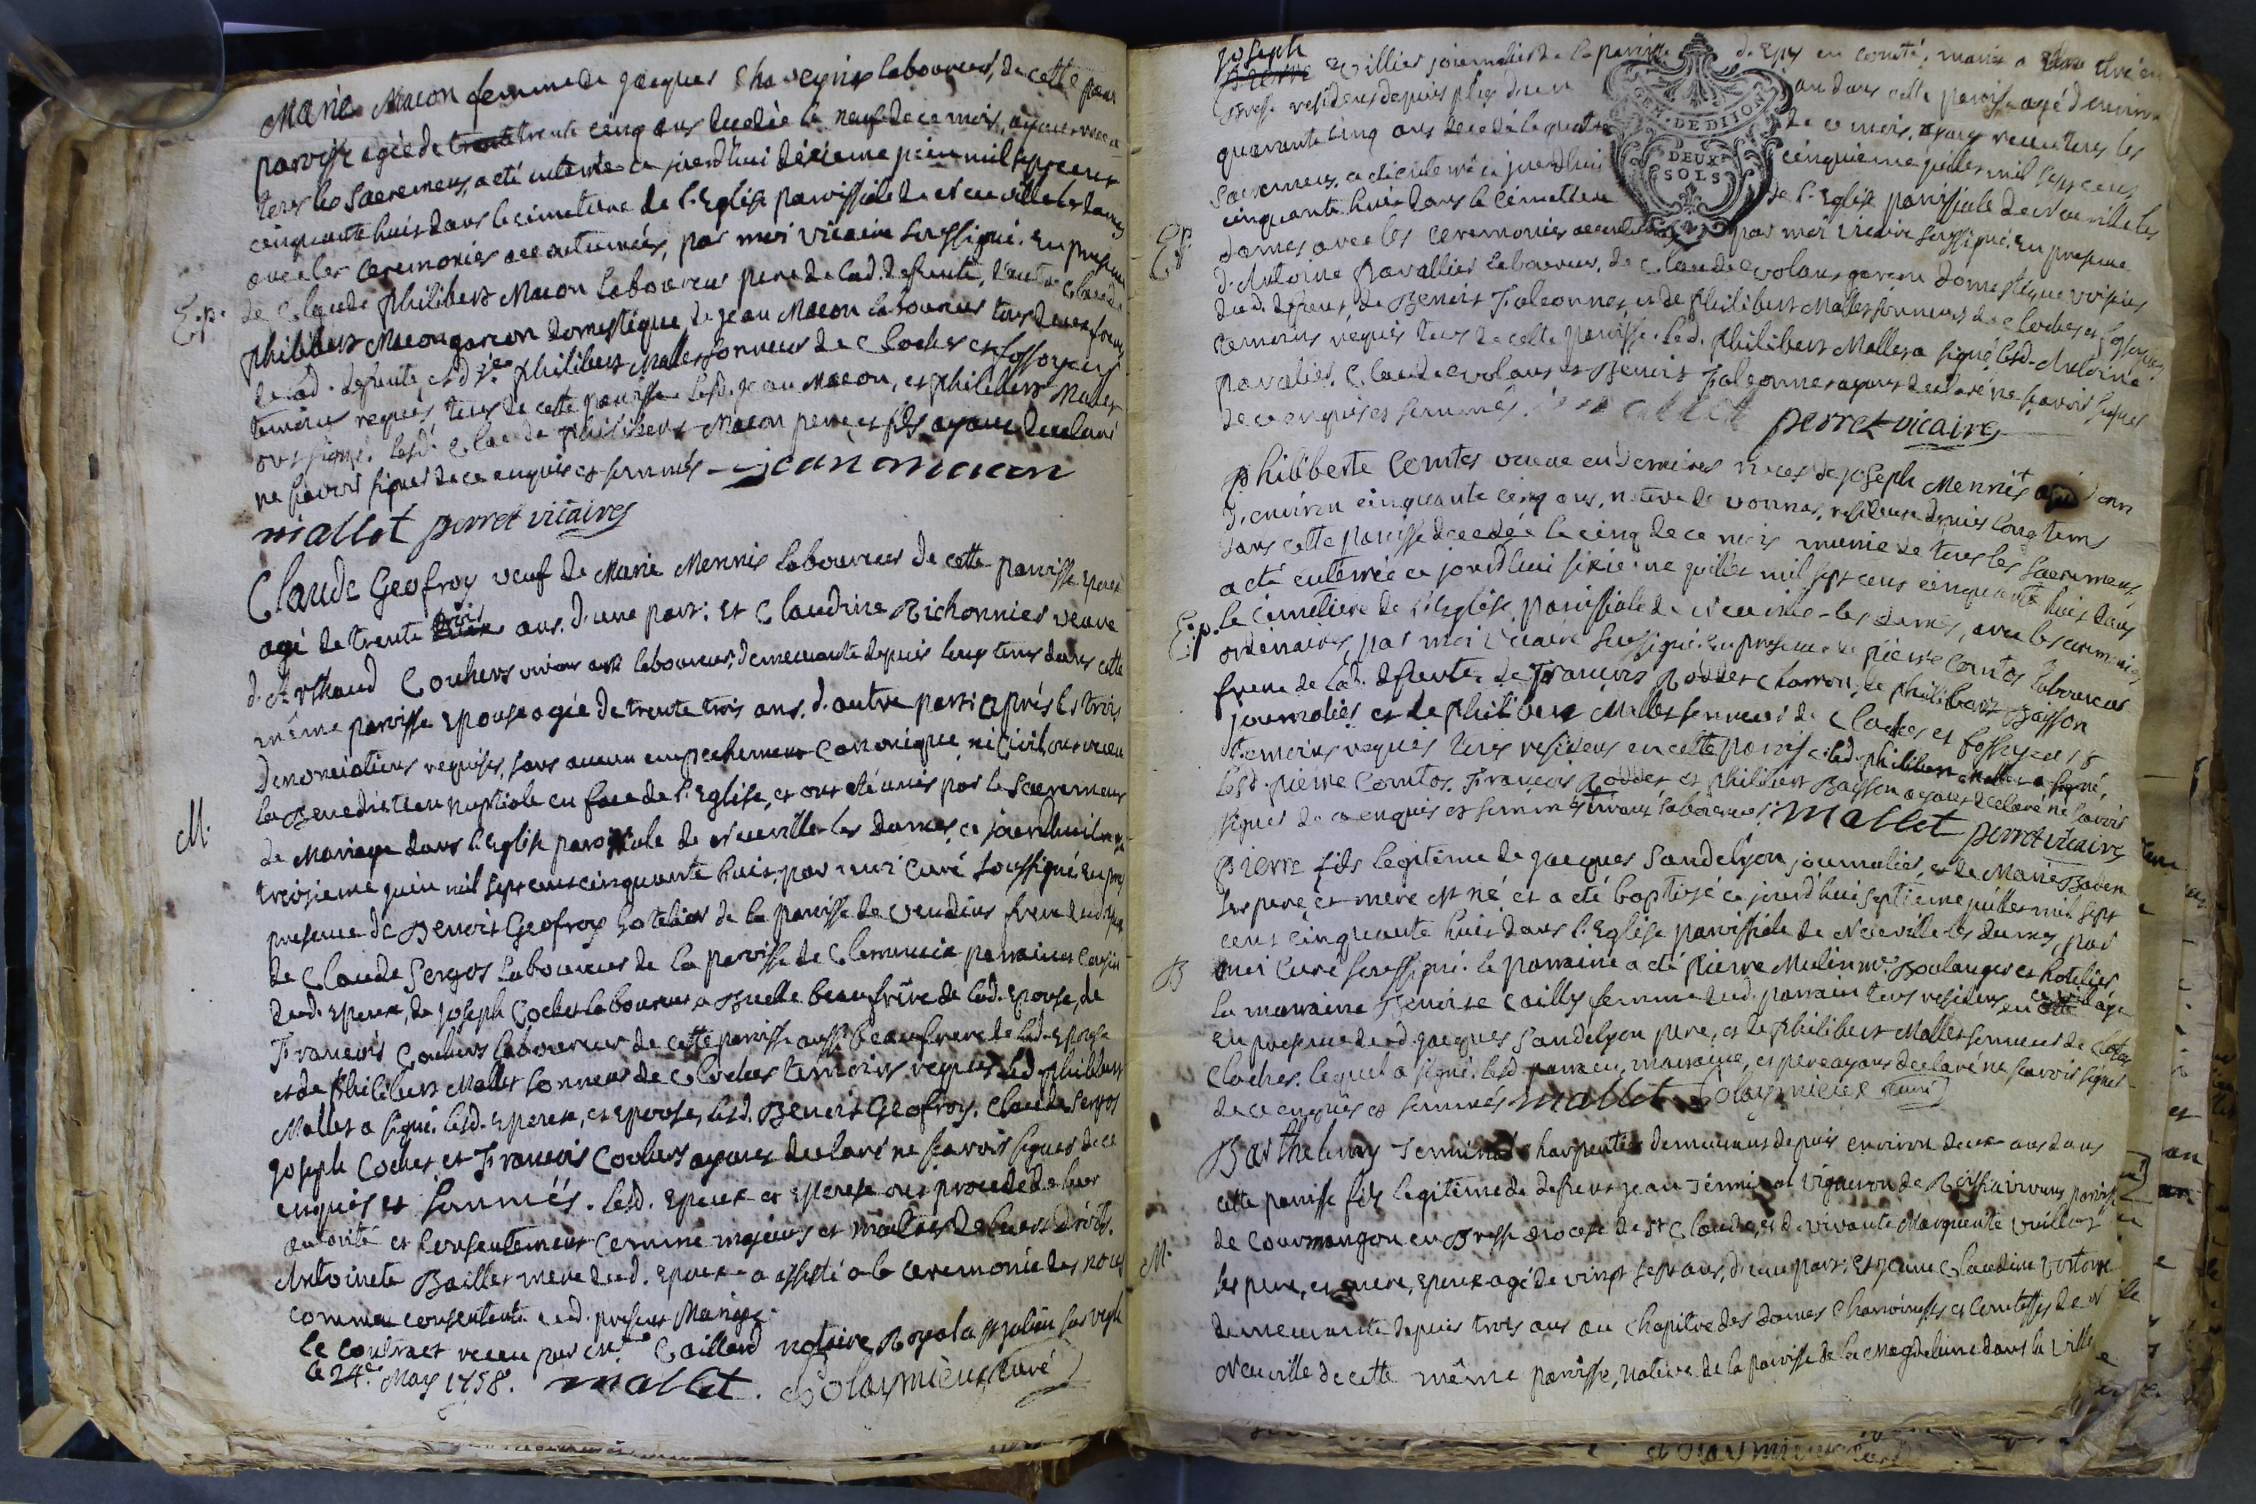 Marie Macon femme de jacques Chaveyrias laboureur, de cette
paroisse agée de trente cinq ans decedée le neuf de ce mois, ayant recu
tous les Sacremens, a été enterrée ce jourdhui dixieme juin mil sept cent
cinquante huit dans le cimetiere de l'Eglise paroissiale de Neuville les dames
avec les ceremonies accoutumées, par moi vicaire soussigné. En presence
Ep. de Claude philibert Macon laboureur pere de lad. defunte, d'autre Claude
philibert Macon garcon domestique, de jean Macon laboureur tous deux freres
de lad. defunte, et de philibert Mallet sonneur de Cloches et fossoyeur
temoins requis, tous de cette paroisse. Lesd. jean Macon, et philibert Mallet
ont signé. Lesd. Claude philibert Macon pere, et fils ayant declaré
ne scavoir signer de ce enquis et sommés. jean macon
mallet perret vicaire
Claude Geofroy veuf de Marie Mennis laboureur de cette paroisse Epoux
agé de trente trois ans. d'une part: Et Claudine Richonnier veuve
d'Arthaud Couhers vivant laboureur, demeurante depuis long tems dans cette
même paroisse Epouse agée de trente trois ans. d'autre part: aprés les trois
denonciations requises, sans aucun empechement canonique, ni civil ont recu
la Benediction nuptiale en face de l'Eglise, et ont été unis par le Sacrement
M. de Mariage dans l'Eglise paroissiale de Neuville les dames, ce jourdhui
treizieme juin mil sept cent cinquante huit, par moi Curé soussigné. En
presence de Benoit Geofroy hotelier de la paroisse de Vendins frere dud.
de Claude Sergos laboureur de la paroisse de Clemencia parrain et Cousin
dud. Epoux, de joseph Cochet laboureur a Buelle beaufrére de lad. Epouse, de
Francois Couhers laboureur de cette paroisse aussi beaufrere de lad. Epouse
et de philibert Mallet sonneur de Cloches temoins requis. led. philibert
Mallet a signé. lesd. Epoux, et Epouse, lesd. Benoit Geofroy, Claude Sergos
joseph Cochet, et Francois Couhers ayant declaré ne scavoir signer de ce
enquis et sommés. lesd. Epoux et Epouse ont procedé de leur
autorité et consentement comme majeurs et maitres de leurs droits.
Antoinete Baillet mere dud. Epoux a assisté a la ceremonie des noces
comme consentente aud. present Mariage.
Le contract receu par Me Caillard notaire Royal a st julien sur veyle
le 24e. May 1758. mallet. Solaymieux Curé
joseph
Pierre Evillier journalier de la paroisse d'Epy en comté, marié a
Bresse residens depuis plus d'un an dans cette paroisse agé d'environ
quarante cinq ans decedé le quatre de ce mois, ayant recu tous les
Sacremens. a eté enterré ce jourdhui cinquieme juillet mil sept cens
cinquante huit dans le Cémettiere de l'Eglise paroissiale de Neuville les
GEN. DE DIJON
DEUX
SOLS
Ep. dames avec les ceremonies accoutumées par moi vicaire soussigné. En presence
d'Antoine pavallier laboureur, de Claude Evolans garcon domestique voisins
dud. defunt, de Benoit Falconnet, et de philibert Mallet sonneur de Cloches, et fossoyeur,
temoins requis tous de cette paroisse. Led. philibert Mallet a signé. lesd. Antoine
pavalier, Claude Evolans et Benoit Falconnet ayans declaré ne scavoir signer
de ce enquis et sommés. mallet perret vicaire
Philiberte Comtes veuve en dernieres noces de joseph Mennis agée
d'environ cinquante cinq ans, native de vonnas, residente depuis long tems
dans cette paroisse decedée le cinq de ce mois munie de tous les Sacremens,
a été enterrée ce jourdhui sixieme juillet mil sept cens cinquante huit dans
Ep. le Cimetiere de l'Eglise paroissiale de Neuville-les dames, avec les ceremonies
ordinaires, par moi vicaire soussigné. En presence de pierre Comtos laboureur
frere de lad. defunte, de Francois Roddet charron, de philibert Baisson
journalier, et de philibert Mallet sonneur de Cloches et fossoyeur
temoins requis tous residens en cette paroisse. led. philibert Mallet a signé,
lesd. pierre Comtos, Francois Roddet et philibert Baisson ayans declaré ne scavoir
signer de ce enquis et sommés. mallet perret vicaire
pierre fils legitime de jacques Sandelyon journalier, et de Marie Baben
ses pere, et mere est né et a eté baptisé ce jourd'hui septieme juillet mil sept
cens cinquante huit dans l'Eglise paroissiale de Neuville les dames, par
B moi Curé soussigné. le parrain a eté pierre Mulin me. Boulanger et hotelier,
la marraine Benoite Cailly femme dud. parrain tous residens en ce village
En presence dud. jacques Sandelyon pere, et de philibert Mallet sonneur de
Cloches. lequel a signé. lesd. parrain, marraine, et pere ayans declaré ne scavoir signer
de ce enquis et sommés. mallet Solaymieux Curé
Barthelemy Terminos charpentier demeurant depuis environ deux ans dans
cette paroisse fils legitime de defunt jean Terminos vigneron de paroisse
de Courmangou en Bresse diocese de st Claude, et de vivante Marguerite vuillot
M. ses pere, et mere, Epoux agé de vingt sept ans, d'une part: Et jeanne Claudine
demeurante depuis trois ans au chapitre des dames Chanoinesses et Comtesses de
Neuville de cette même paroisse, native de la paroisse de la Magdeleine dans la ville